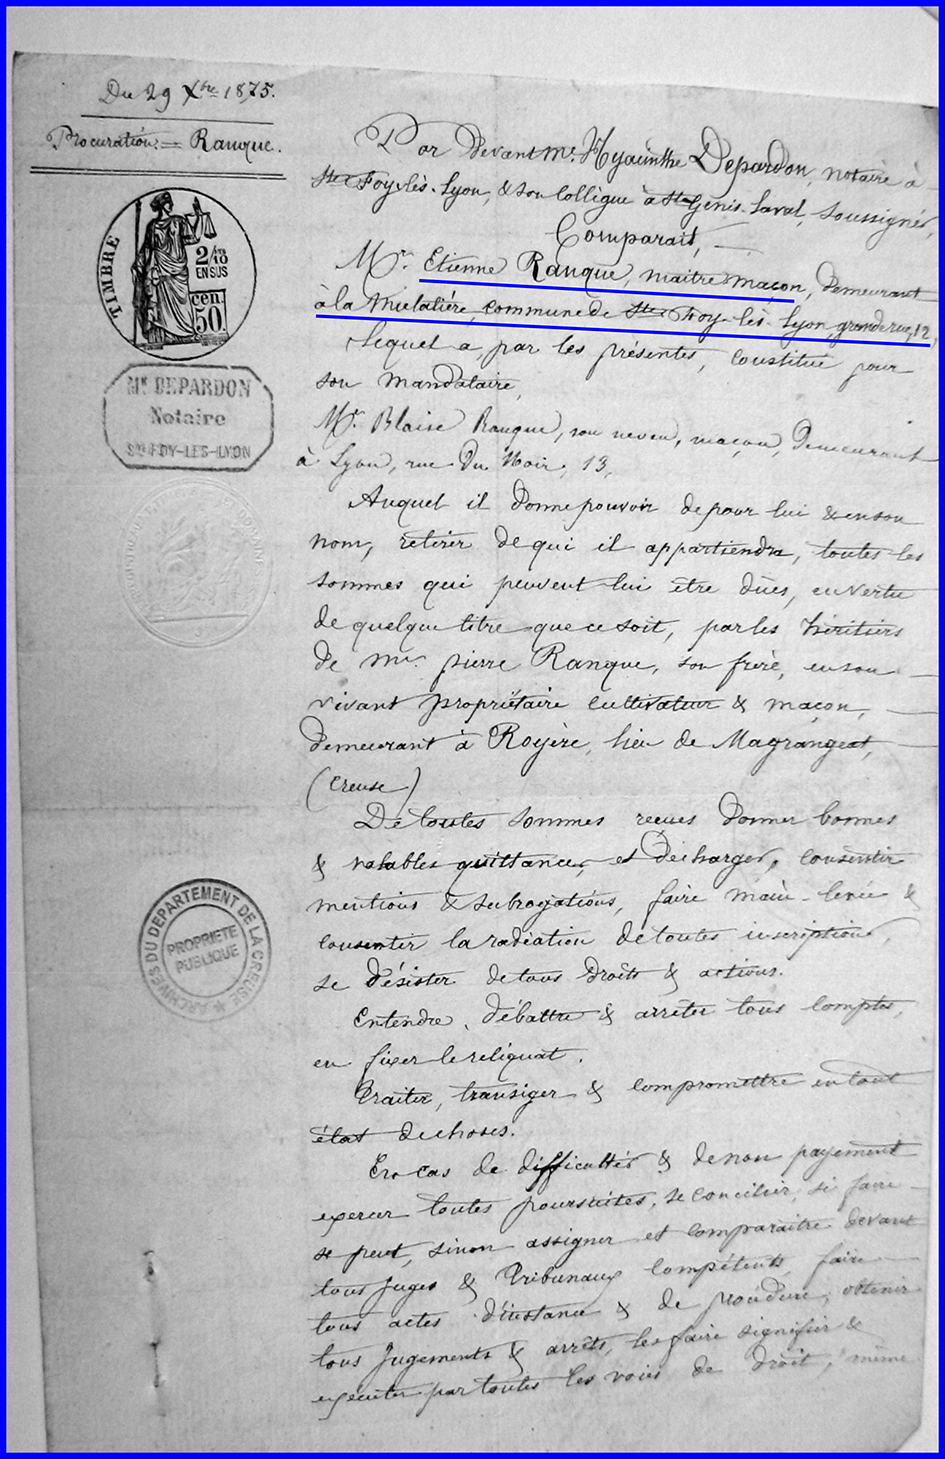 Du 29 Xbre 1875.
Procuration = Ranque.
TIMBRE
2/10 EN SUS
50 cen.
Me DEPARDON
Notaire
Ste FOY-LES-LYON
ARCHIVES DU DEPARTEMENT DE LA CREUSE
PROPRIETE
PUBLIQUE
Par Devant Me. Hyacinthe Depardon, notaire à
Ste Foy lès-Lyon, & son Collègue à St Genis-Laval, soussignés,
Comparait,
Mr. Etienne Ranque, maitre maçon, demeurant
à la Mulatière, commune de Ste Foy-lès-Lyon, grande rue, 12,
Lequel a, par les présentes, constitué pour
son mandataire,
Mr. Blaise Ranque, son neveu, maçon, demeurant
à Lyon, rue Du Noir, 13,
Auquel il donne pouvoir de pour lui & en son
nom, retirer de qui il appartiendra, toutes les
sommes qui peuvent lui etre dües, en vertu
de quelque titre que ce soit, par les héritiers
de Mr. pierre Ranque, son frère, en son
vivant propriétaire cultivateur & maçon,
demeurant à Royère, lieu de Magrangeat,
(Creuse)
De toutes sommes reçues donner bonnes
& valables quittances et décharges, consentir
mentions & subrogations, faire main-levée &
consentir la radiation de toutes inscriptions,
se désister de tous droits & actions.
Entendre, débattre & arrêter tous comptes,
en fixer le reliquat.
Traiter, transiger & compromettre en tout
état de choses.
En cas de difficultés & de non payement
exercer toutes poursuites, se concilier, si faire
se peut, sinon assigner et comparaitre devant
tous Juges & Tribunaux compétents, faire
tous actes d'instance & de procédure, obtenir
tous Jugements & arrêts, les faire signifier &
exécuter par toutes les voies de droit, même